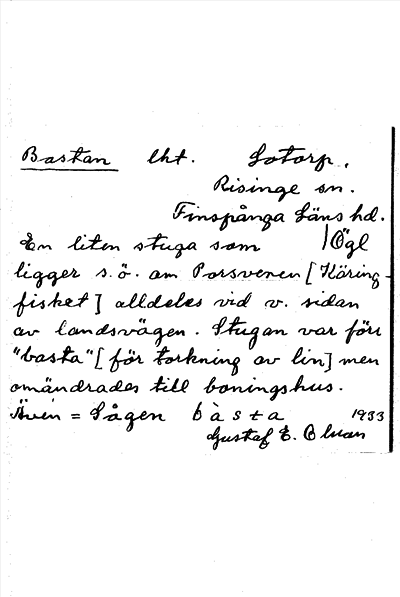 Bastan lht. Sotorp.
Risinge sn.
Finspånga Läns hd.
En liten stuga som | Ögl
ligger s.ö. om Porsvenen [Käring-
fisket] alldeles vid v. sidan
av landsvägen. Stugan var förr
"basta" [för torkning av lin] men
omändrades till boningshus.
Även = Sågen bàsta 1933
Gustaf E.